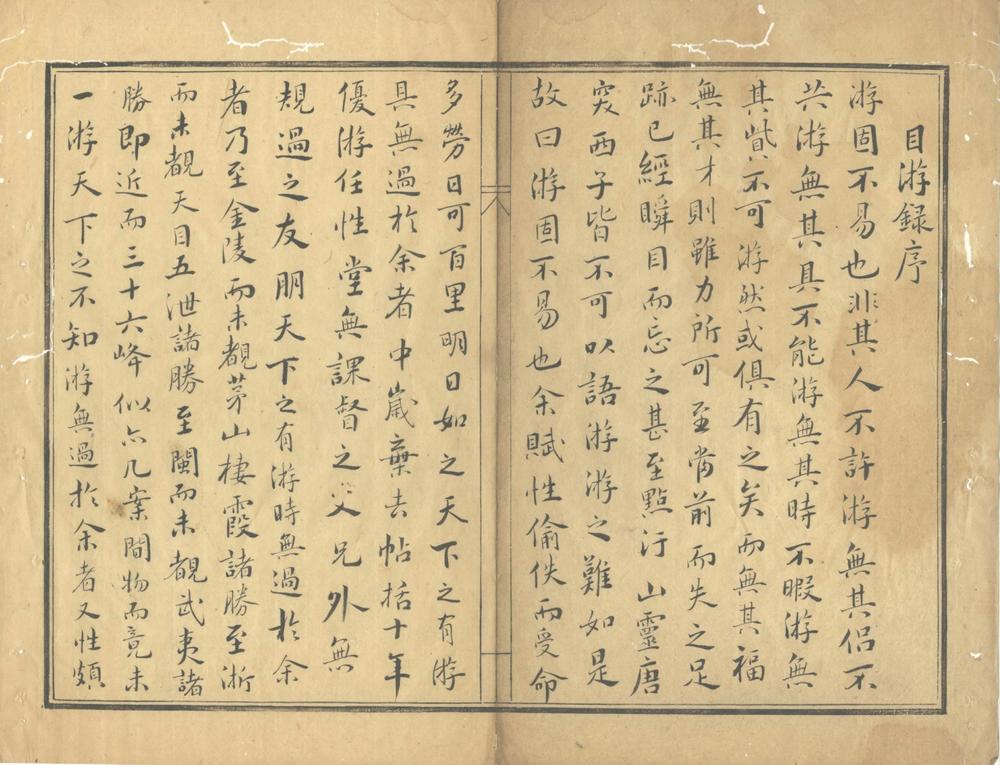 目游録序
游固不易也非其人不許游無其侣不
共游無其具不能游無其時不暇游無
其貲不可游然或俱有之矣而無其福
無其才則雖力所可至當前而失之足
跡已經瞬目而忘之甚至點汙山靈唐
突西子皆不可以語游游之難如是
故曰游固不易也余賦性偷佚而受命
多勞日可百里明日如之天下之有游
具無過於余者中嵗棄去帖括十年
優游任性堂無課督之父兄外無
規過之友朋天下之有游時無過於余
者乃至金陵而未覩茅山棲霞諸勝至浙
而未覩天目五泄諸勝至閩而未覩武夷諸
勝即近而三十六峰似亦几案間物而竟未
一游天下之不知游無過於余者又性頗